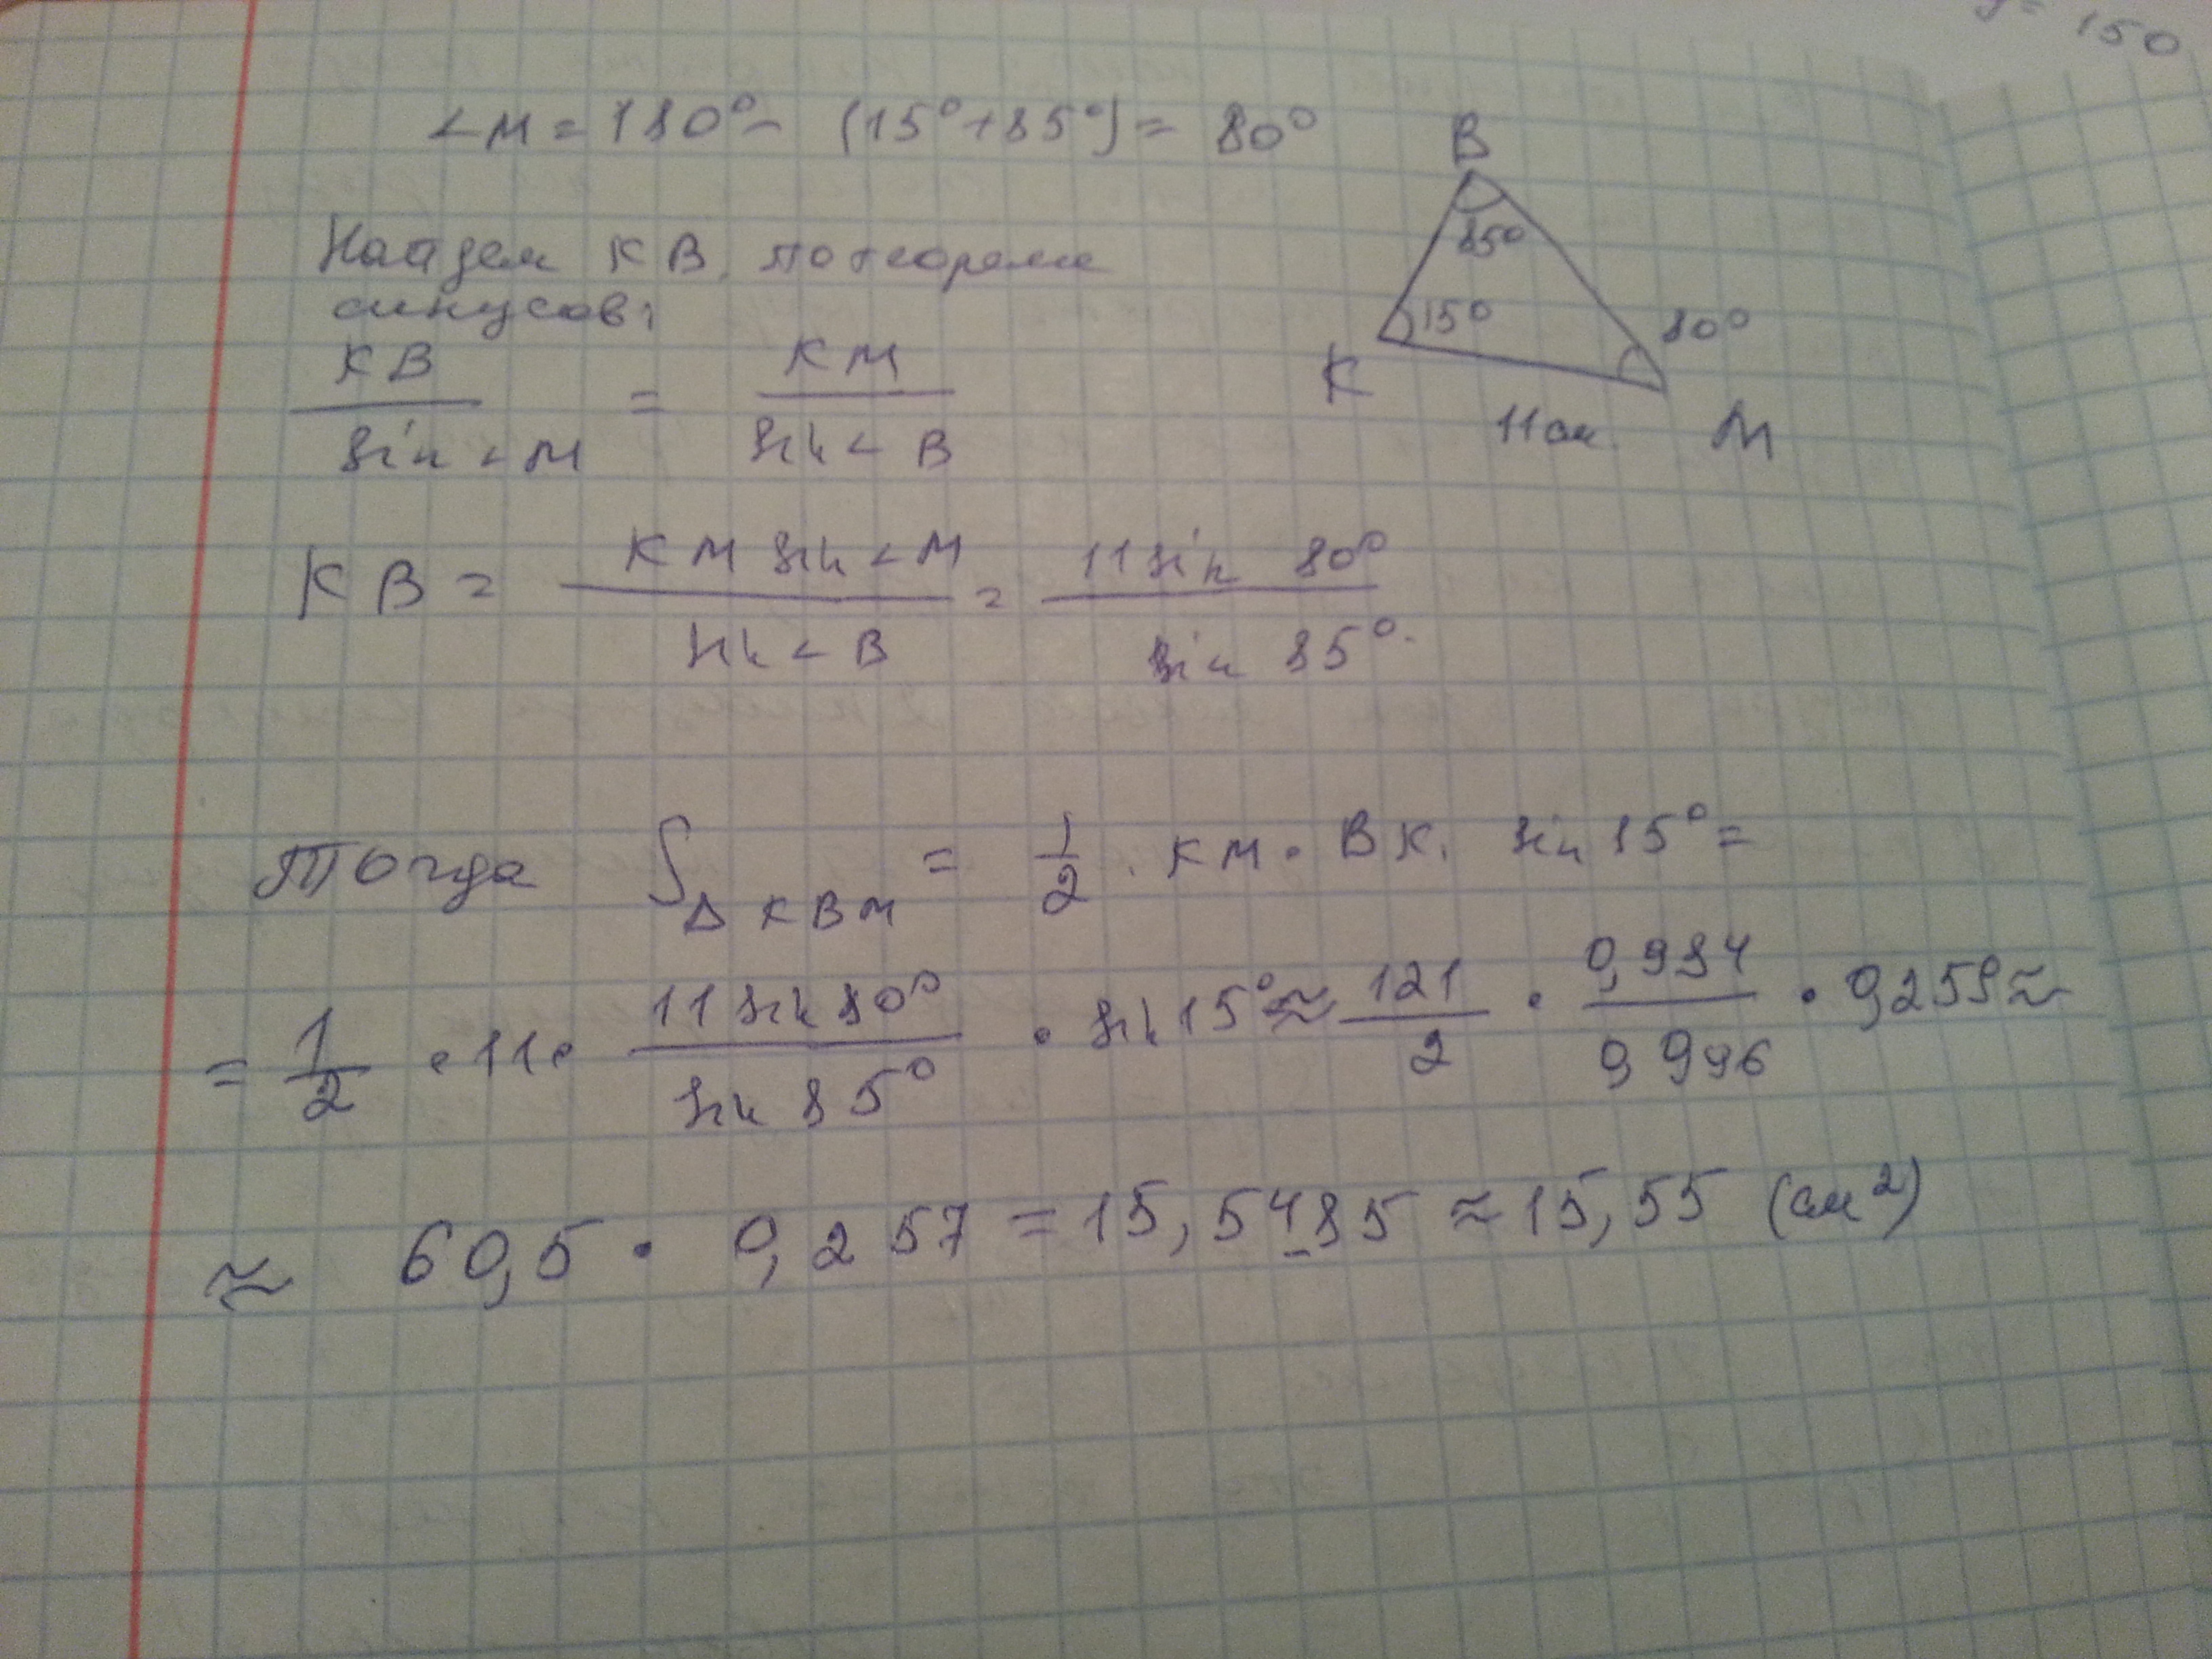 y = 150
∠M = 180° - (15° + 85°) = 80°
B
85°
15°
80°
K
11 см
M
Найдем KB, по теореме
синусов:
KB / sin ∠M = KM / sin ∠B
KB = KM sin ∠M / sin ∠B = 11 sin 80° / sin 85°.
Тогда S△KBM = 1/2 · KM · BK · sin 15° =
= 1/2 · 11 · 11 sin 80° / sin 85° · sin 15° ≈ 121/2 · 0,984 / 0,996 · 0,259 ≈
≈ 60,5 · 0,257 = 15,5485 ≈ 15,55 (см²)